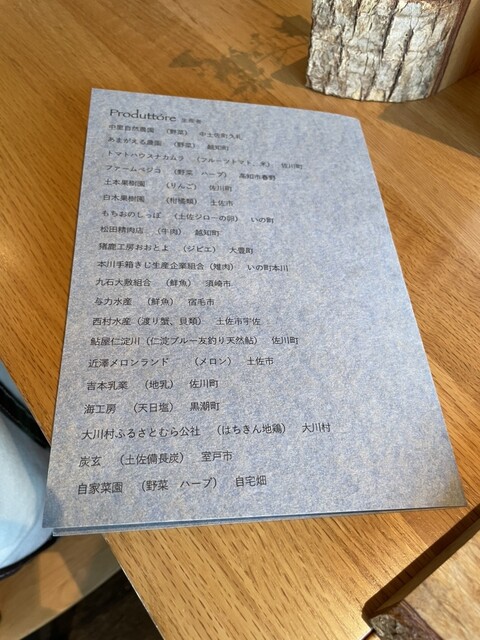 Produttore 生産者
中里自然農園 （野菜） 中土佐町久礼
あまがえる農園 （野菜） 越知町
トマトハウスナカムラ （フルーツトマト、米） 佐川町
ファームベジコ （野菜 ハーブ） 高知市春野
土本果樹園 （りんご） 佐川町
白木果樹園 （柑橘類） 土佐市
もちおのしっぽ （土佐ジローの卵） いの町
松田精肉店 （牛肉） 越知町
猪鹿工房おおとよ （ジビエ） 大豊町
本川手箱きじ生産企業組合（雉肉） いの町本川
九石大敷組合 （鮮魚） 須崎市
与力水産 （鮮魚） 宿毛市
西村水産（渡り蟹、貝類） 土佐市宇佐
鮎屋仁淀川（仁淀ブルー友釣り天然鮎） 佐川町
近澤メロンランド （メロン） 土佐市
吉本乳業 （地乳） 佐川町
海工房 （天日塩） 黒潮町
大川村ふるさとむら公社 （はちきん地鶏） 大川村
炭玄 （土佐備長炭） 室戸市
自家菜園 （野菜 ハーブ） 自宅畑